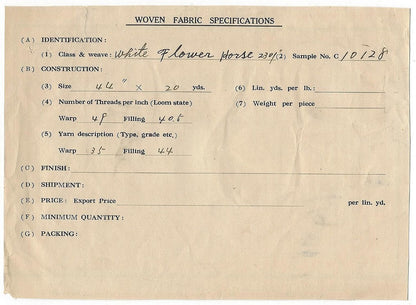 WOVEN FABRIC SPECIFICATIONS
(A) IDENTIFICATION:
(1) Class & weave: White Flower Horse 2301(2) Sample No. C 10128
(B) CONSTRUCTION:
(3) Size 44" × 20 yds. (6) Lin. yds. per lb.:
(4) Number of Threads per inch (Loom state) (7) Weight per piece
Warp 49 Filling 40.5
(5) Yarn description (Type, grade etc,)
Warp 35 Filling 44
(C) FINISH:
(D) SHIPMENT:
(E) PRICE: Export Price per lin. yd.
(F) MINIMUM QUANTITY:
(G) PACKING: